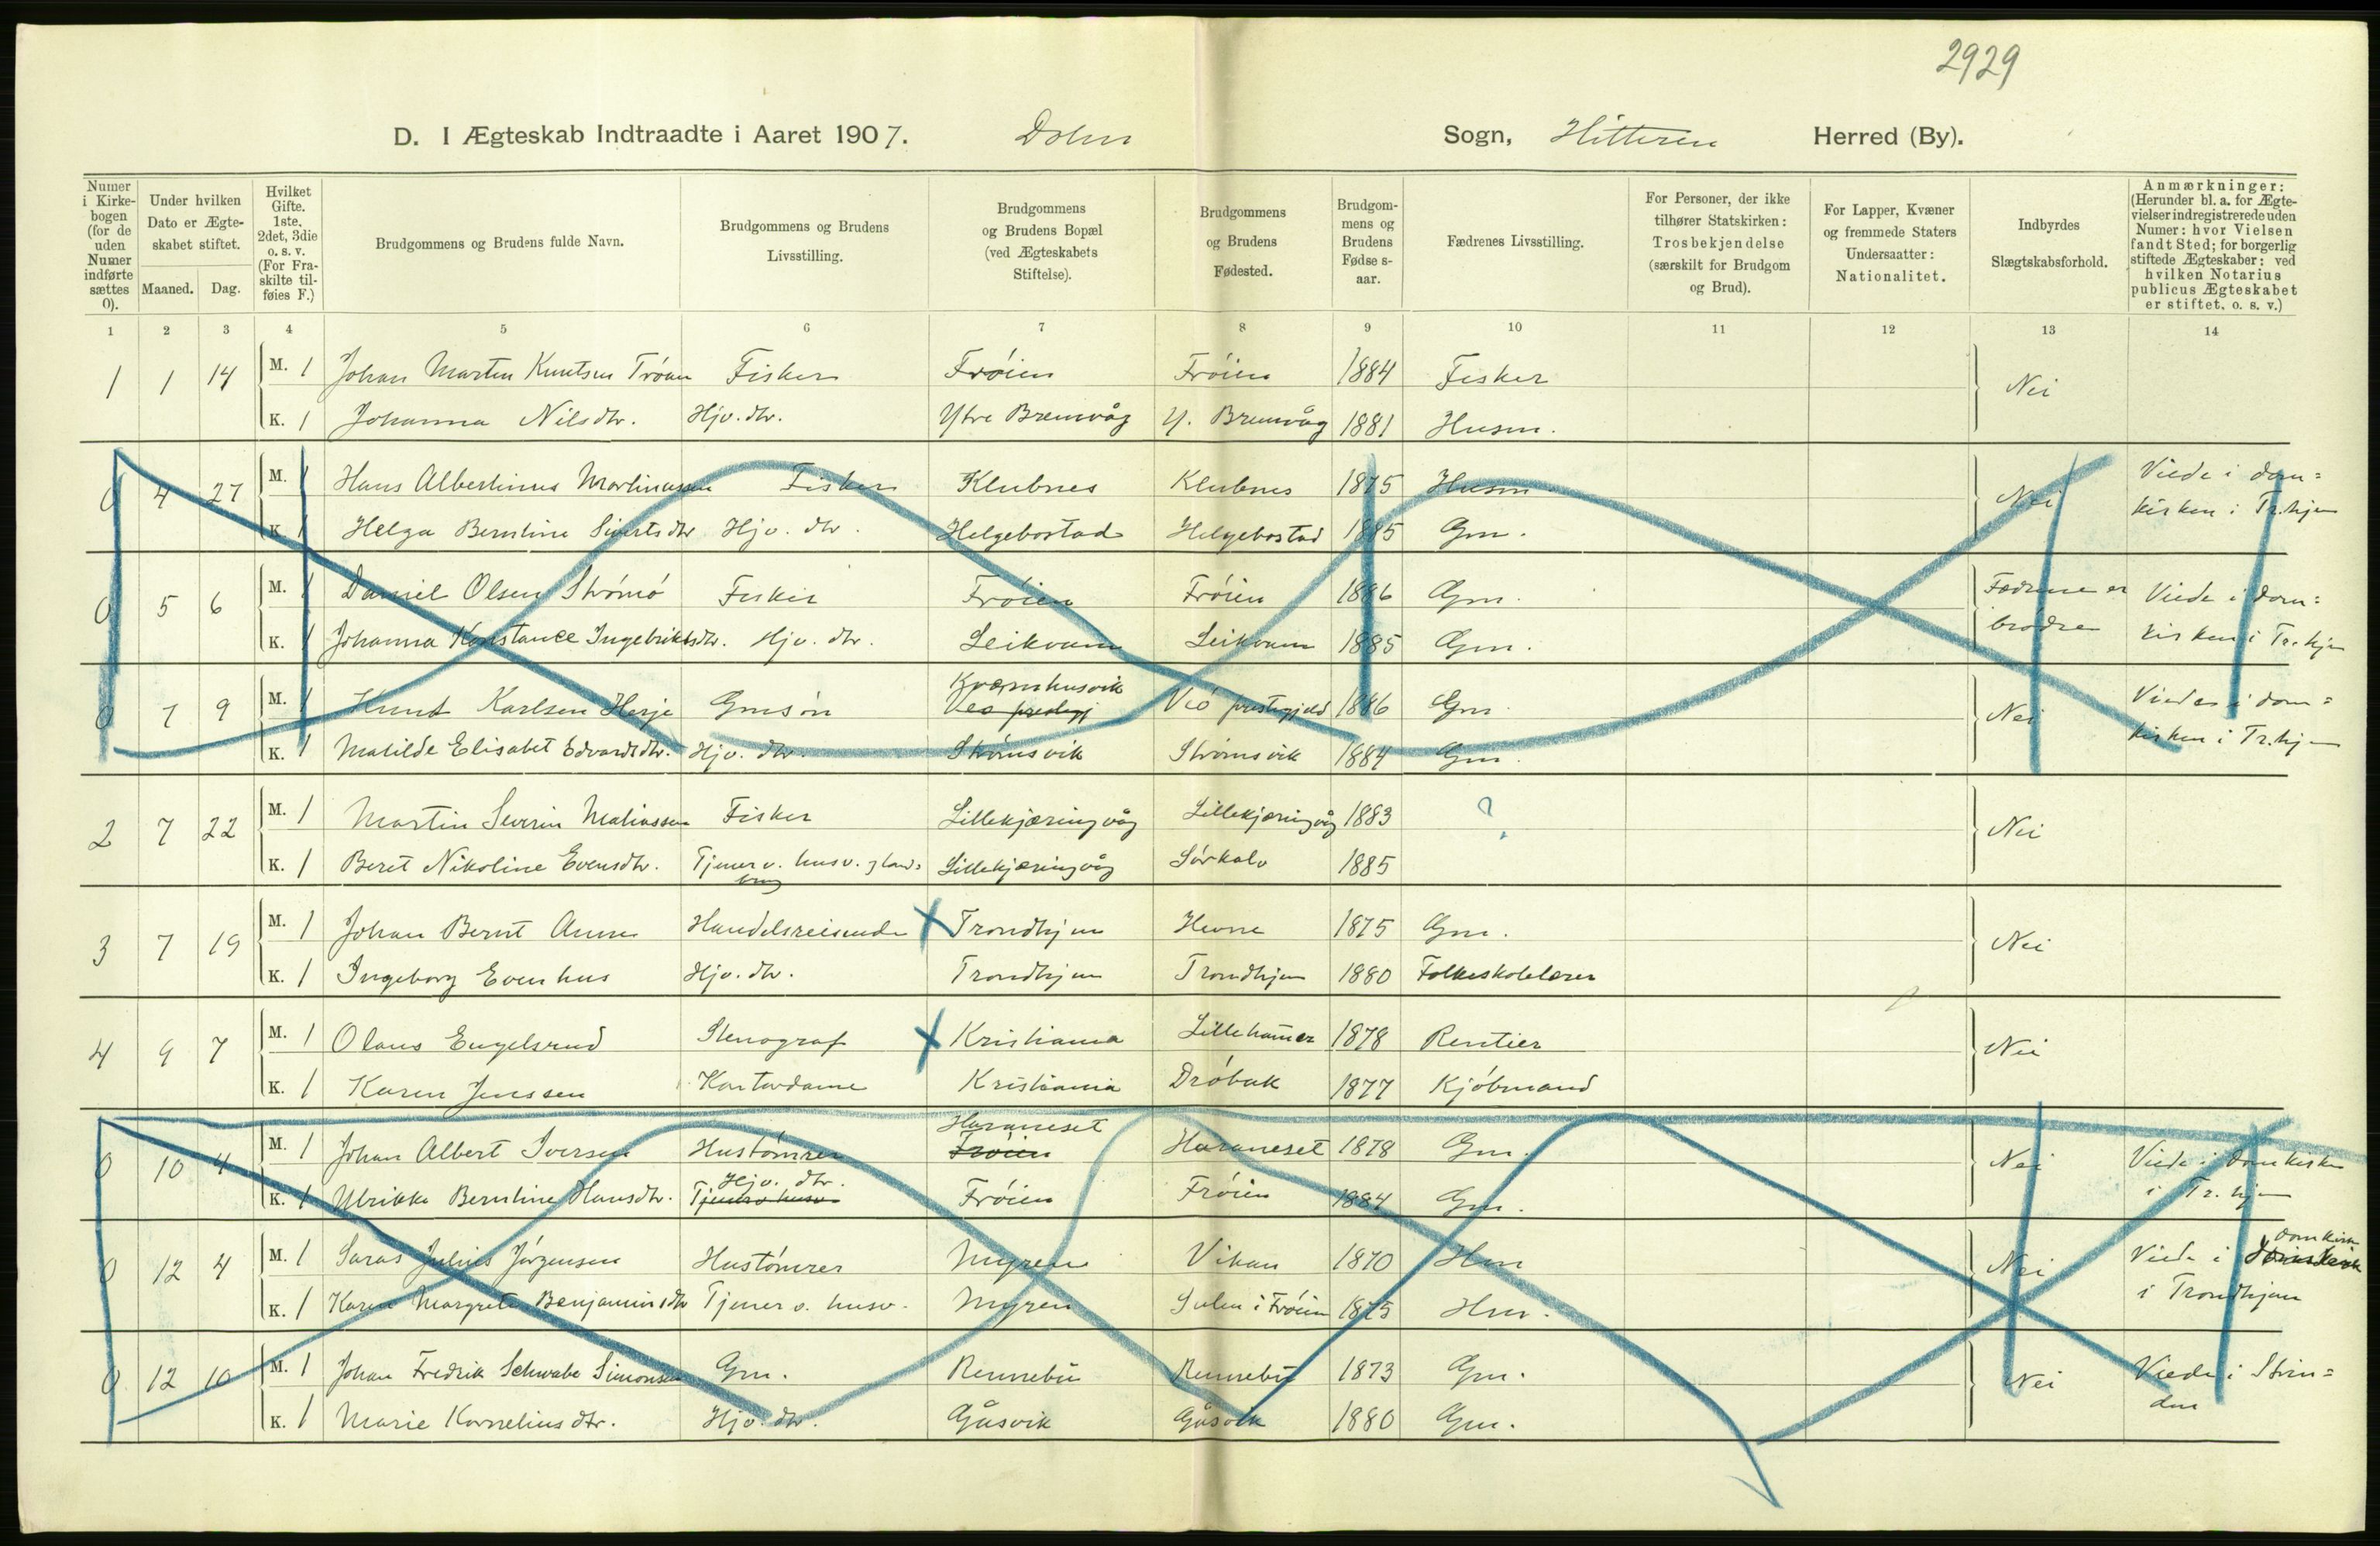 2929
D. I Ægteskab Indtraadte i Aaret 1907. Dolm Sogn, Hitteren Herred (By).
Numer i Kirkebogen (for de uden Numer indførte sættes 0).
Under hvilken Dato er Ægteskabet stiftet.
Maaned. Dag.
Hvilket Gifte. 1ste, 2det, 3die o. s. v. (For Fraskilte tilføies F.)
Brudgommens og Brudens fulde Navn.
Brudgommens og Brudens Livsstilling.
Brudgommens og Brudens Bopæl (ved Ægteskabets Stiftelse).
Brudgommens og Brudens Fødested.
Brudgommens og Brudens Fødselsaar.
Fædrenes Livsstilling.
For Personer, der ikke tilhører Statskirken: Trosbekjendelse (særskilt for Brudgom og Brud).
For Lapper, Kvæner og fremmede Staters Undersaatter: Nationalitet.
Indbyrdes Slægtskabsforhold.
Anmærkninger: (Herunder bl. a. for Ægtevielser indregistrerede uden Numer: hvor Vielsen fandt Sted; for borgerlig stiftede Ægteskaber: ved hvilken Notarius publicus Ægteskabet er stiftet, o. s. v.)
1 2 3 4 5 6 7 8 9 10 11 12 13 14
1 1 14 M. 1 Johan Martin Knutsen Trøan Fisker Frøien Frøien 1884 Fisker Nei
K. 1 Johanna Nilsdtr. Hjv. dtr. Ytre Bremvåg Y. Bremvåg 1881 Husm.
0 4 27 M. 1 Hans Albertinus Martinussen Fisker Klubnes Klubnes 1875 Husm. Nei Viede i dom=
K. 1 Helga Berntine Sivertsdtr Hjv. dtr. Helgebostad Helgebostad 1885 Gm. kirken i Tr.hjem
0 5 6 M. 1 Daniel Olsen Strømø Fisker Frøien Frøien 1886 Gm. Fædrene er Viede i dom=
K. 1 Johanna Konstance Ingebriktsdtr. Hjv. dtr. Leikvam Leikvam 1885 Gm. brødre kirken i Tr.hjem
Kværnhusvik
0 7 9 M. 1 Knut Karlsen Herje Gmsøn Veø prestegj Veø prestegjeld 1886 Gm. Nei Viedes i dom=
K. 1 Matilde Elisabet Edvardsdtr. Hjv. dtr. Strømsvik Strømsvik 1884 Gm. kirken i Tr.hjem
2 7 22 M. 1 Martin Severin Matiassen Fisker Lillekjæringvåg Lillekjæringvåg 1883 ? Nei
K. 1 Beret Nikoline Evensdtr. Tjener v. husv. g land= Lillekjæringvåg Sørkalv 1885
brug
3 7 19 M. 1 Johan Bernt Aune Handelsreisende Trondhjem Hevne 1875 Gm. Nei
K. 1 Ingeborg Evenhus Hjv. dtr. Trondhjem Trondhjem 1880 Folkeskolelærer
4 9 7 M. 1 Olaus Engelsrud Stenograf Kristiania Lillehamer 1878 Rentier Nei
K. 1 Karen Jenssen Kontordame Kristiania Drøbak 1877 Kjøbmand
Havneset
0 10 4 M. 1 Johan Albert Iversen Hustømrer Frøien Havneset 1878 Gm. Nei Viede i domkirken
Hjv. dtr.
K. 1 Ulrikke Berntine Hansdtr. Tjener v. husv. Frøien Frøien 1884 Gm. i Tr.hjem
domkirk
0 12 4 M. 1 Saras Julius Jørgensen Hustømrer Myren Vikan 1870 Hm Nei Viede i
K. 1 Karen Margrete Benjaminsdtr Tjener v. husv. Myren Sulen i Frøien 1875 Hm. i Trondhjem
0 12 10 M. 1 Johan Fredrik Schwabe Simonsen Gm. Rennebu Rennebu 1873 Gm. Nei Viede i Strin=
K. 1 Marie Kornelius dtr. Hjv. dtr. Gåsvik Gåsvik 1880 Gm. den